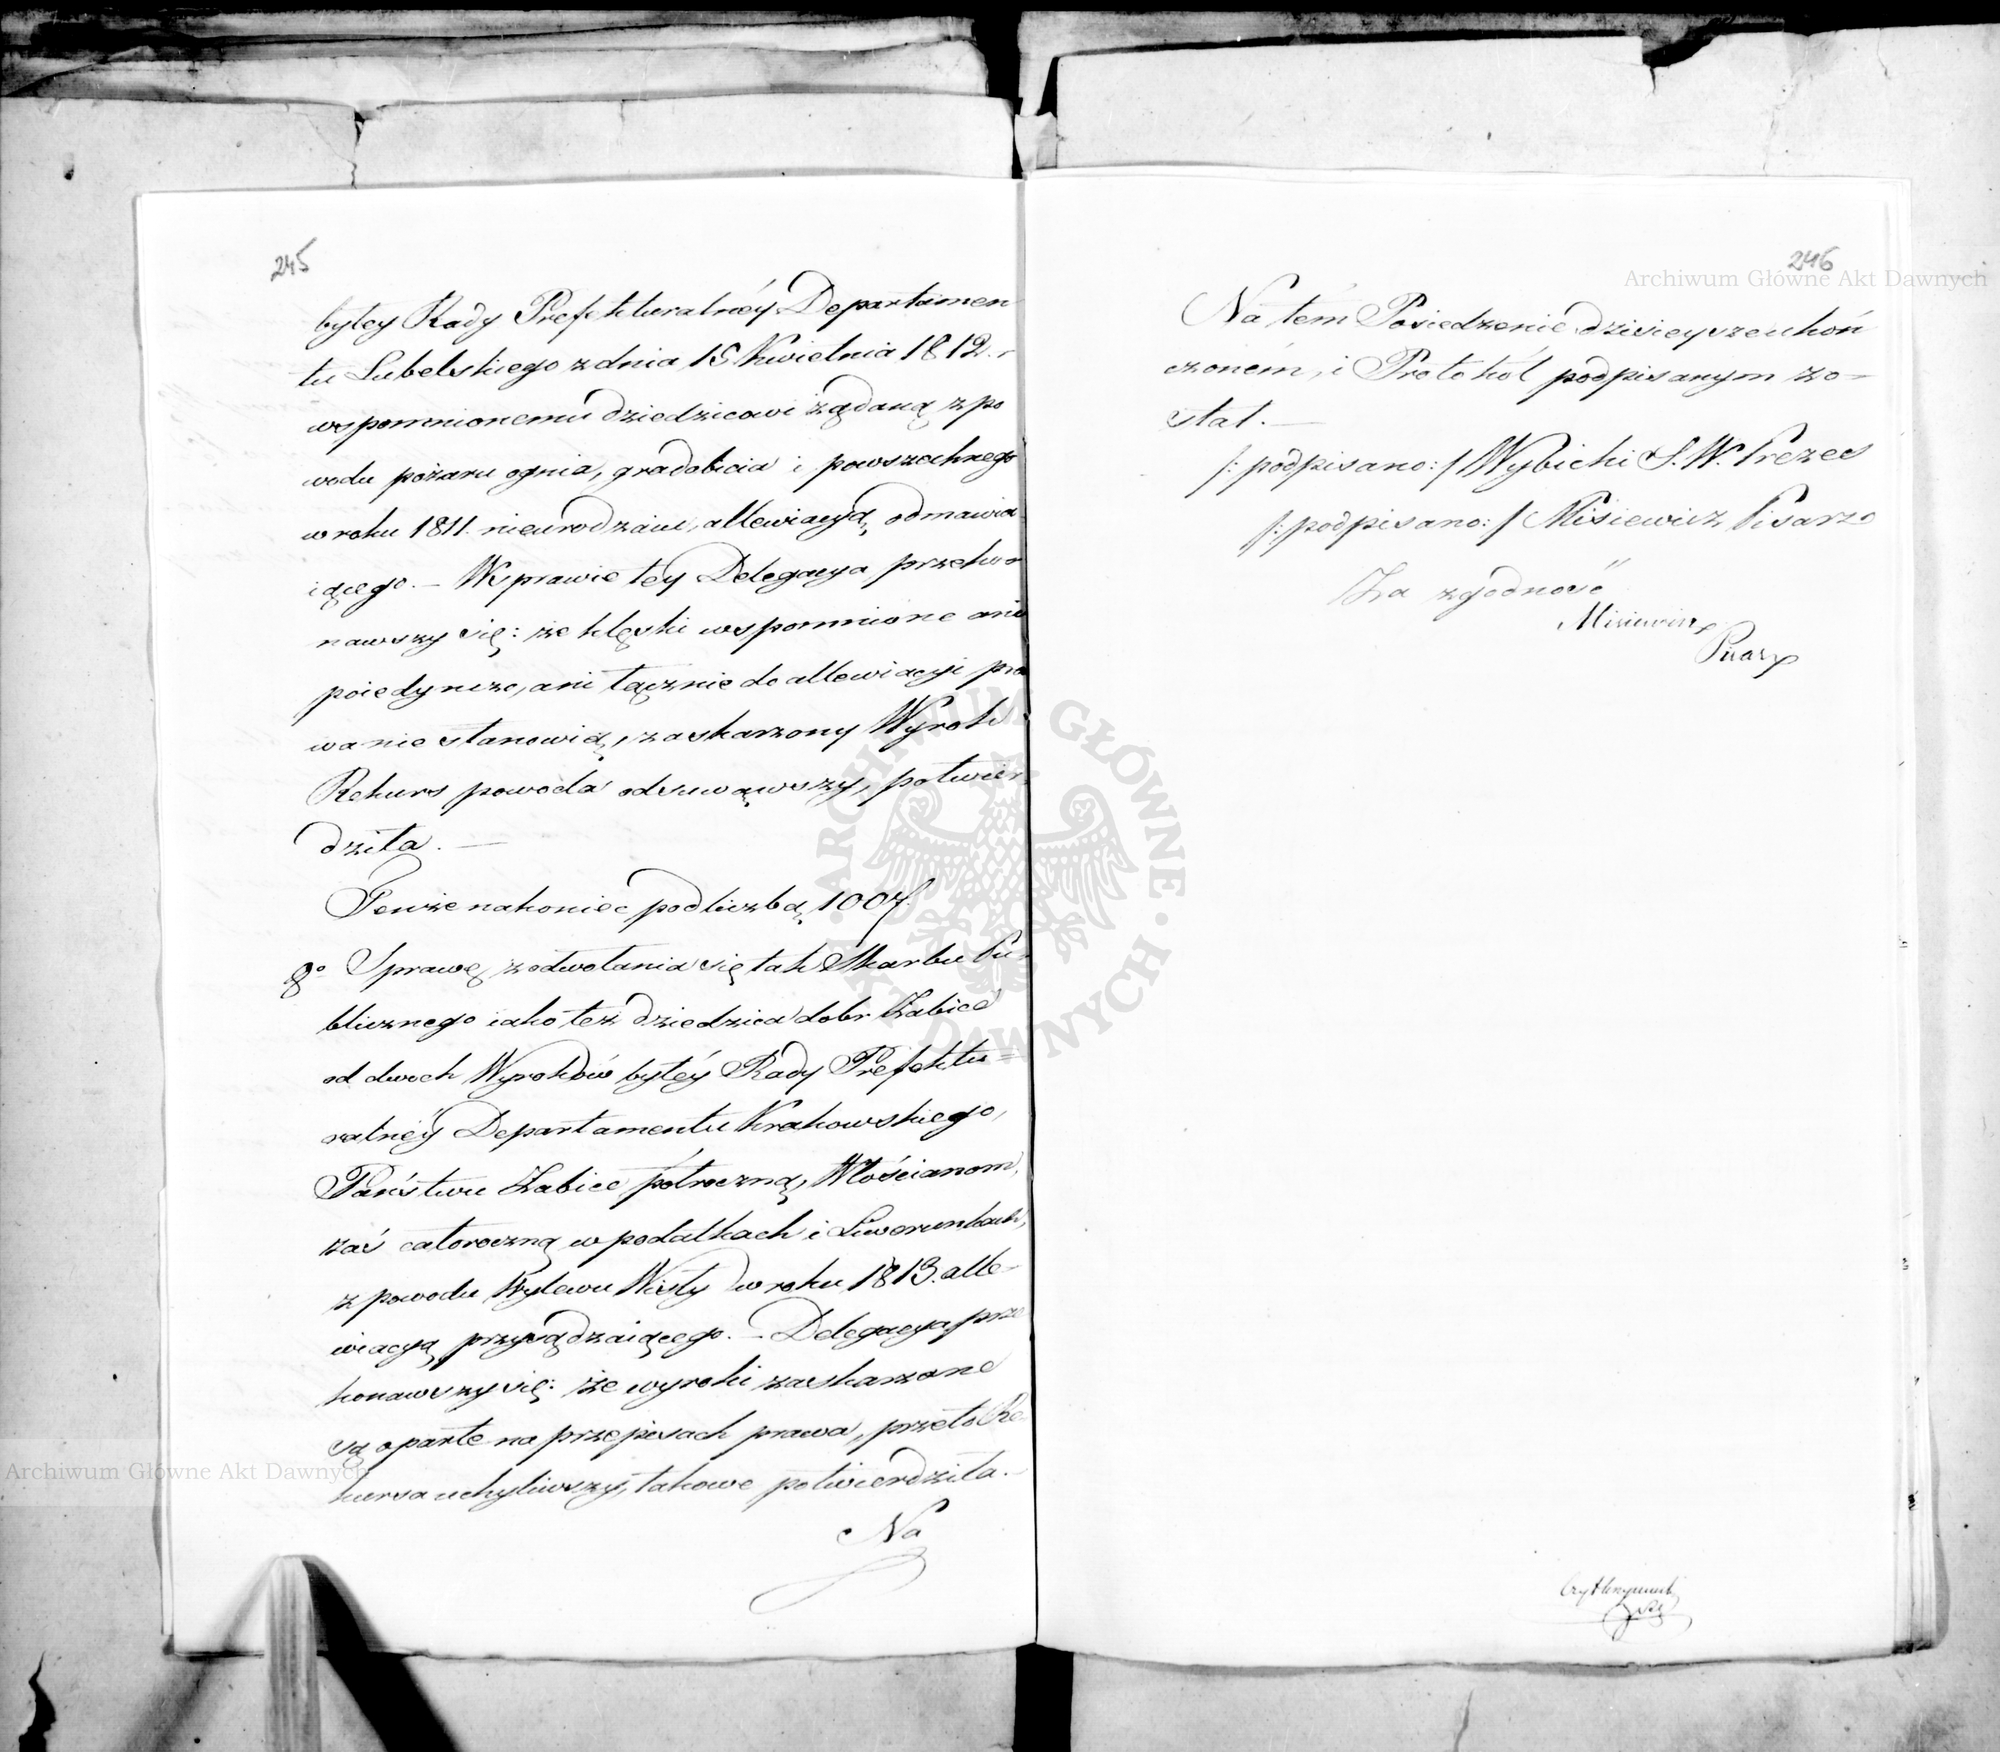 245
byłey Rady Prefekturalnéy Departamen
tu Lubelskiego z dnia 15 Kwietnia 1812. r
wspomnionemu dziedzicowi żądaną z po
wodu pożaru ognia, gradobicia i powszechnego
w roku 1811. nieurodzaiu, allewiacyą odmawia
iącego. – W sprawie tey Delegacya przeko
nawszy się: że klęski wspomnione ani
poiedyncze, ani łącznie do allewiacyi pra
wa nie stanowią, zaskarzony Wyrok
Rekurs powoda odsunąwszy, potwier
dziła. —
Tenże nakoniec pod liczbą 1007.
8o Sprawę z odwołania się tak Skarbu Pu
blicznego iako też dziedzica dobr Zabice
od dwóch Wyroków byłéy Rady Prefektu=
ralnéy Departamentu Krakowskiego,
Państwu Zabice półroczną, Włościanom,
zaś całoroczną w podatkach i Liwerunkach,
z powodu Wylewu Wisły w roku 1813. alle-
wiacyą przysądzaiącego. – Delegacya prze
konawszy się: że wyroki zaskarzone
są oparte na przepisach prawa, przeto Re
kursa uchyliwszy, takowe potwierdziła. –
Na
246
Na tém Posiedzenie dzisieysze ukoń
czoném, i Protokół podpisanym zo-
stał. —
/: podpisano: / Wybicki S. W. Prezes
/: podpisano: / Misiewicz Pisarz
Za zgodność
Misiewicz
Pisarz
Archiwum Główne Akt Dawnych
Archiwum Główne Akt Dawnych
ARCHIWUM GŁÓWNE AKT DAWNYCH